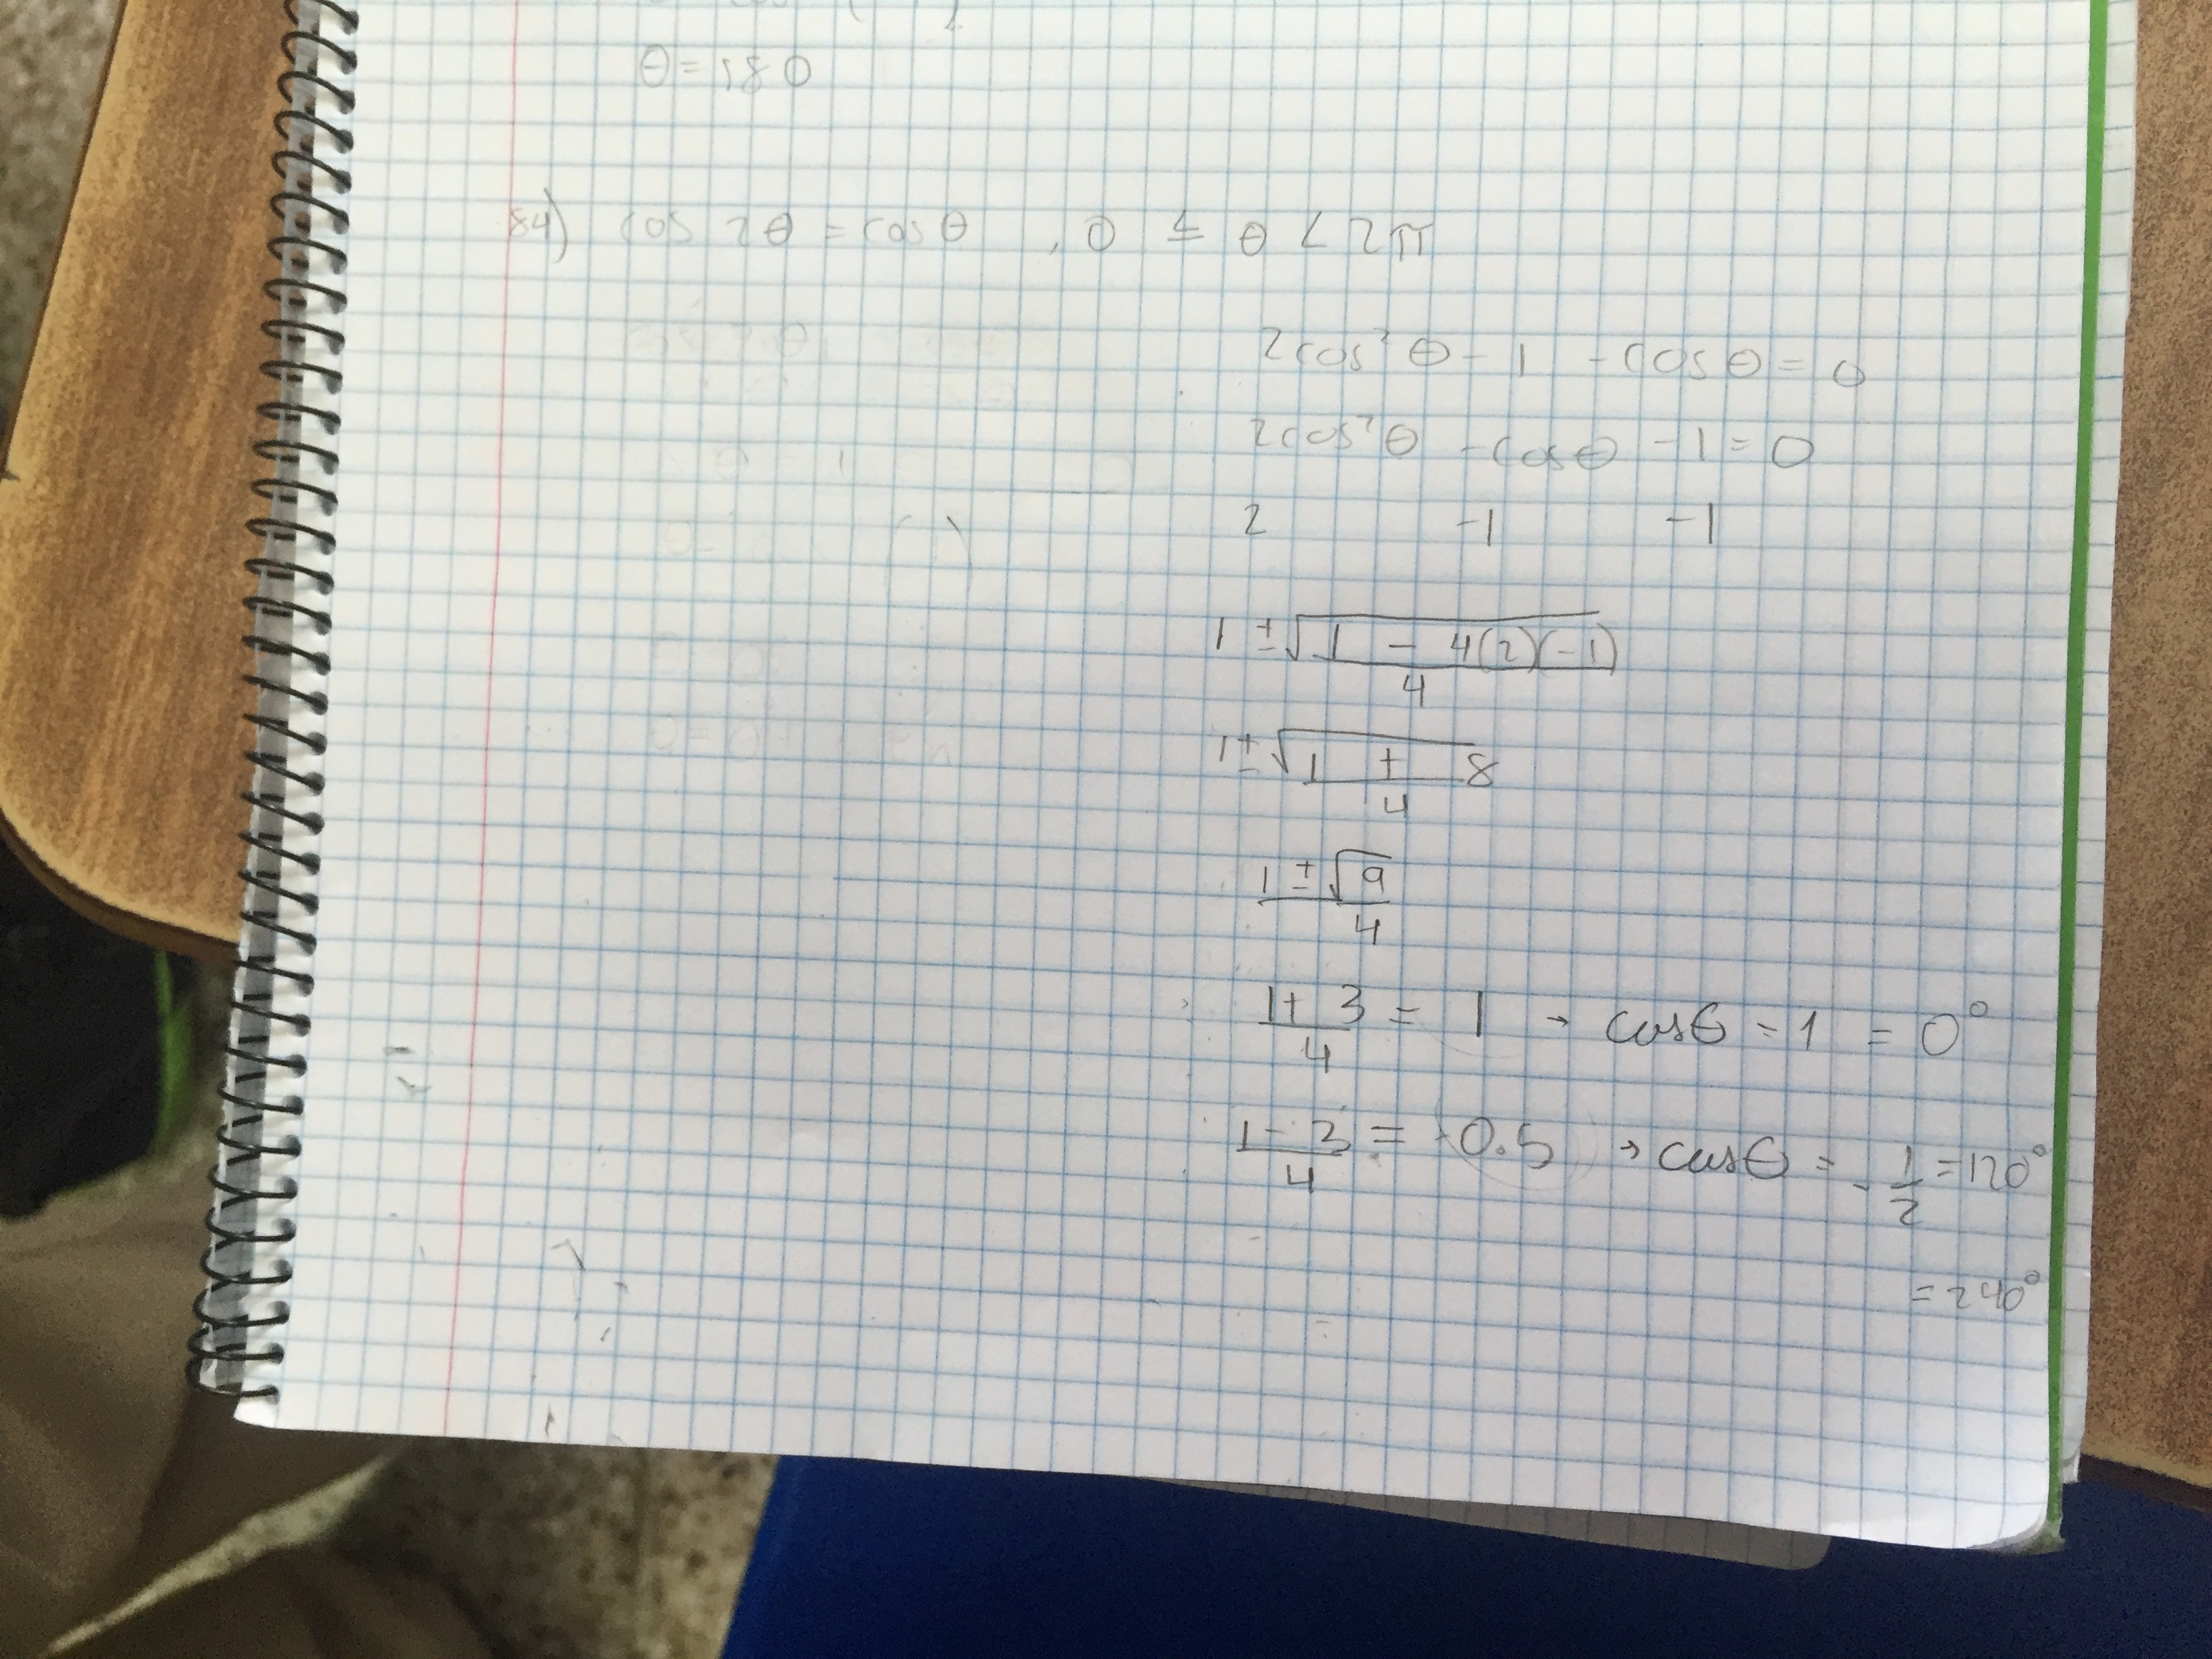 θ = 180
84) cos 2θ = cos θ , 0 ≤ θ < 2π
2cos²θ - 1 - cos θ = 0
2cos²θ - cos θ - 1 = 0
2 -1 -1
1 ± √1 - 4(2)(-1)
4
1 ± √1 + 8
4
1 ± √9
4
1 + 3 = 1 → cos θ = 1 = 0°
4
1 - 3 = -0.5 → cos θ = - 1/2 = 120°
4
= 240°